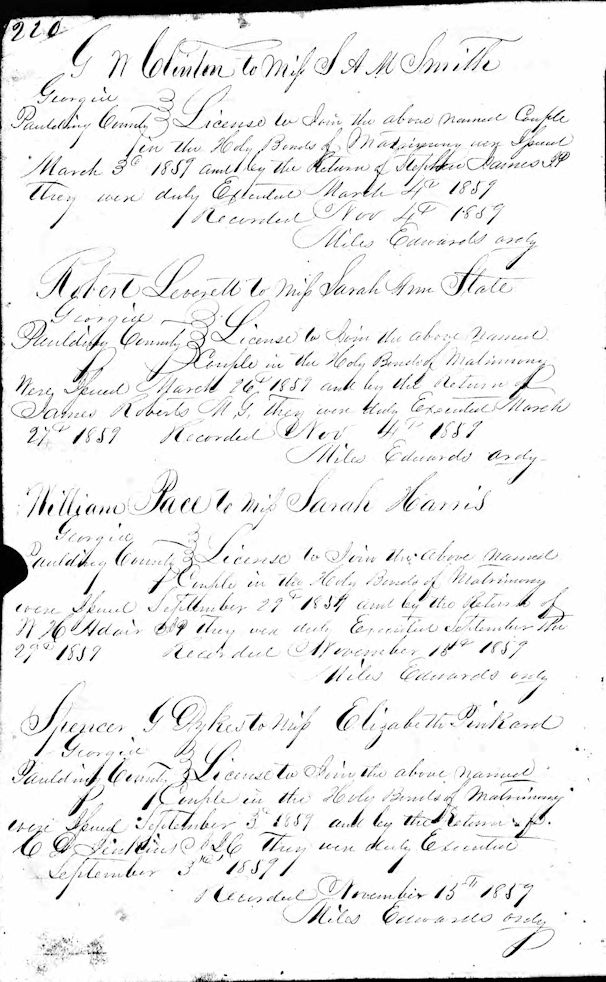 220
G N Clinton to Miss S A M Smith
Georgia
Paulding County License to Join the above named Couple
in the Holy Bonds of Matrimony wer Issued
March 3d 1859 and by the Return of Stephen Haines JP
they wer duly Executed March 4th 1859
Recorded Nov 4th 1859
Miles Edwards ordy
Robert Leverett to Miss Sarah Ann State
Georgia
Paulding County License to Join the above named
Couple in the Holy Bonds of Matrimony
Were Issued March 26th 1859 and by the Return of
James Roberts M G, they wer duly Executed March
27th 1859 Recorded Nov 4th 1859
Miles Edwards ordy
William Pace to Miss Sarah Harris
Georgia
Paulding County License to Join the above named
Couple in the Holy Bonds of Matrimony
were Issued September 29th 1859 and by the Return of
N H Adair they wer duly Executed September the
29th 1859 Recorded November 15th 1859
Miles Edwards ordy
Spencer G Dykes to Miss Elizabeth Pinkard
Georgia
Paulding County License to Join the above named
Couple in the Holy Bonds of Matrimony
were Issued September 3d 1859 and by the Return of
Jenkins they wer duly Executed
September 3rd 1859
Recorded November 15th 1859
Miles Edwards ordy